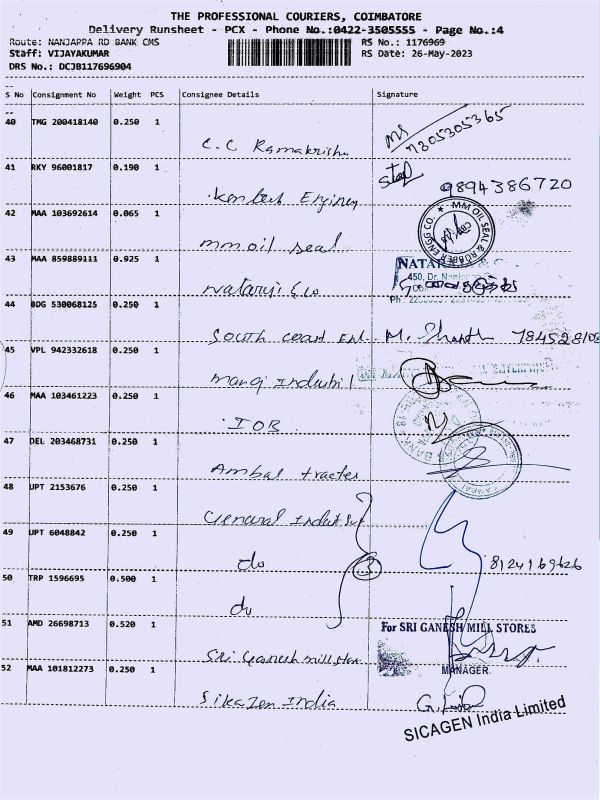 THE PROFESSIONAL COURIERS, COIMBATORE
Delivery Runsheet - PCX - Phone No.:0422-3505555 - Page No.:4
Route: NANJAPPA RD BANK CMS RS No.: 1176969
Staff: VIJAYAKUMAR RS Date: 26-May-2023
DRS No.: DCJB117696904
S No Consignment No Weight PCS Consignee Details Signature
40 TMG 200418140 0.250 1
C.C Ramakrishn
ms 7805305365
41 RKY 96001817 0.190 1
9894386720
42 MAA 103692614 0.065 1
mm oil seal
MM OIL SEAL & RUBBER ENGG CO.
43 MAA 859889111 0.925 1
Nataraj & Co
NATAR & C
450, Dr.
Ph :
44 BDG 530068125 0.250 1
South coast Enl M. Shanth
45 VPL 942332618 0.250 1
mangi Industri l
46 MAA 103461223 0.250 1
IOB
47 DEL 203468731 0.250 1
Ambal tractes
48 UPT 2153676 0.250 1
General Indust
49 UPT 6048842 0.250 1
do 3 8124169626
50 TRP 1596695 0.500 1
do
51 AMD 26698713 0.520 1
For SRI GANESH MILL STORES
Sri Ganesh mill stor
MANAGER
52 MAA 101812273 0.250 1
Sikazen India
SICAGEN India Limited